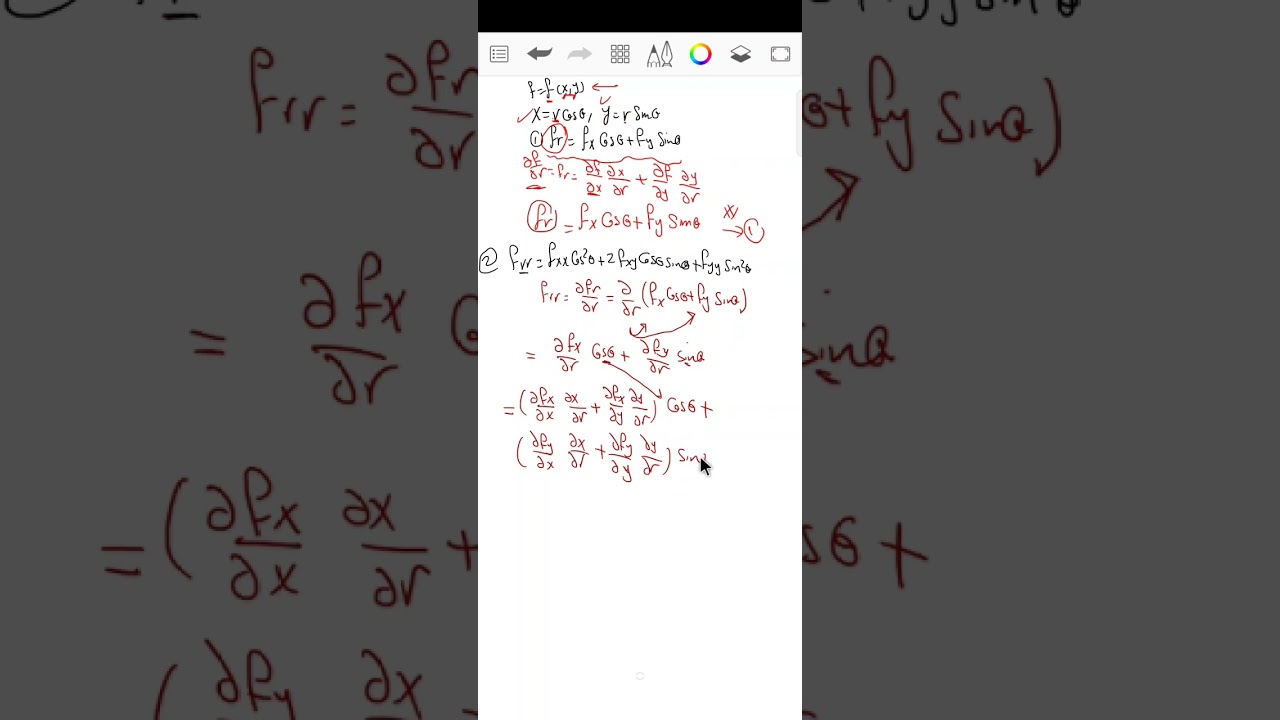 f=f(x,y) ←
x=rcosθ, y=rsinθ
① fr = fx Cosθ+fy Sinθ
∂f/∂r = fr = ∂f/∂x ∂x/∂r + ∂f/∂y ∂y/∂r
fr = fx Cosθ+fy Sinθ → ①
② frr = fxx Cos²θ+2fxy Cosθ sinθ+fyy Sin²θ
frr = ∂fr/∂r = ∂/∂r (fx Cosθ+fy Sinθ)
= ∂fx/∂r Cosθ + ∂fy/∂r Sinθ
= (∂fx/∂x ∂x/∂r + ∂fx/∂y ∂y/∂r) Cosθ +
(∂fy/∂x ∂x/∂r + ∂fy/∂y ∂y/∂r) Sin